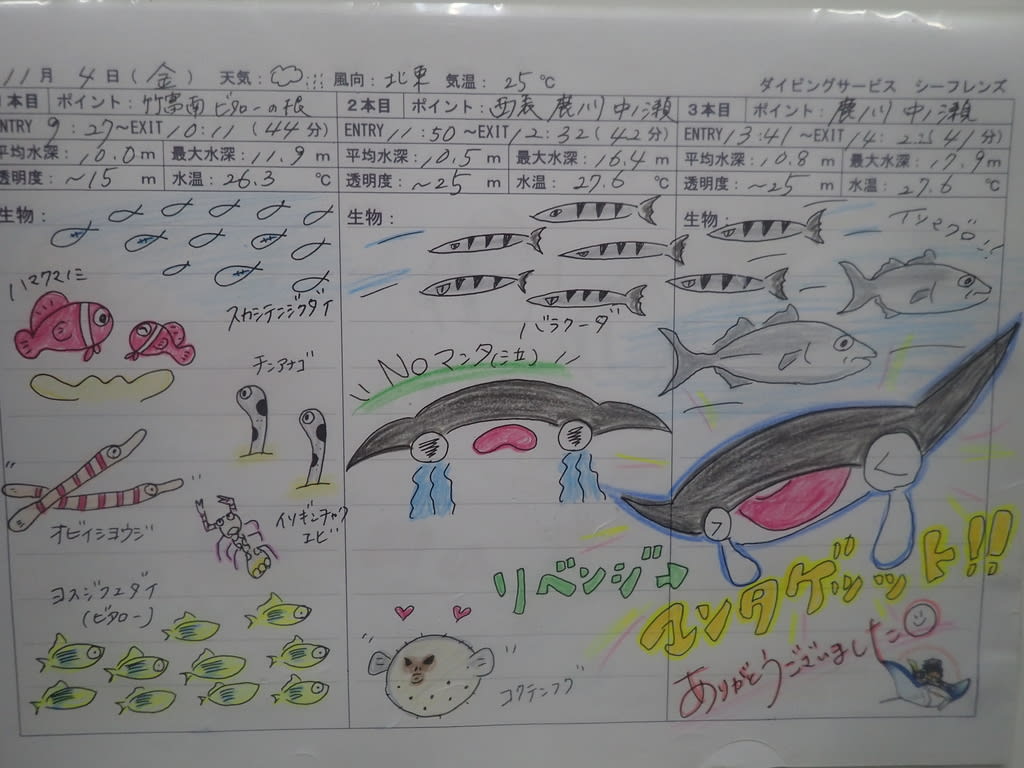 11月 4日(金) 天気: 風向:北東 気温:25℃
ダイビングサービス シーフレンズ
1本目 ポイント:竹富南ビタローの根
ENTRY 9:27~EXIT 10:11(44分)
平均水深:10.0m 最大水深:11.9m
透明度:~15m 水温:26.3℃
生物:
スカシテンジクダイ
ハマクマノミ
チンアナゴ
オビイシヨウジ
イソギンチャク
エビ
ヨスジフエダイ
(ビタロー)
2本目 ポイント:西表 鹿川 中ノ瀬
ENTRY 11:50~EXIT 12:32(42分)
平均水深:10.5m 最大水深:16.4m
透明度:~25m 水温:27.6℃
生物:
バラクーダ
NOマンタ(泣)
リベンジ→
コクテンフグ
3本目 ポイント:鹿川 中ノ瀬
ENTRY 13:41~EXIT 14: (41分)
平均水深:10.8m 最大水深:17.9m
透明度:~25m 水温:27.6℃
生物:
イソマグロ!!
マンタゲッット!!
ありがとうございました